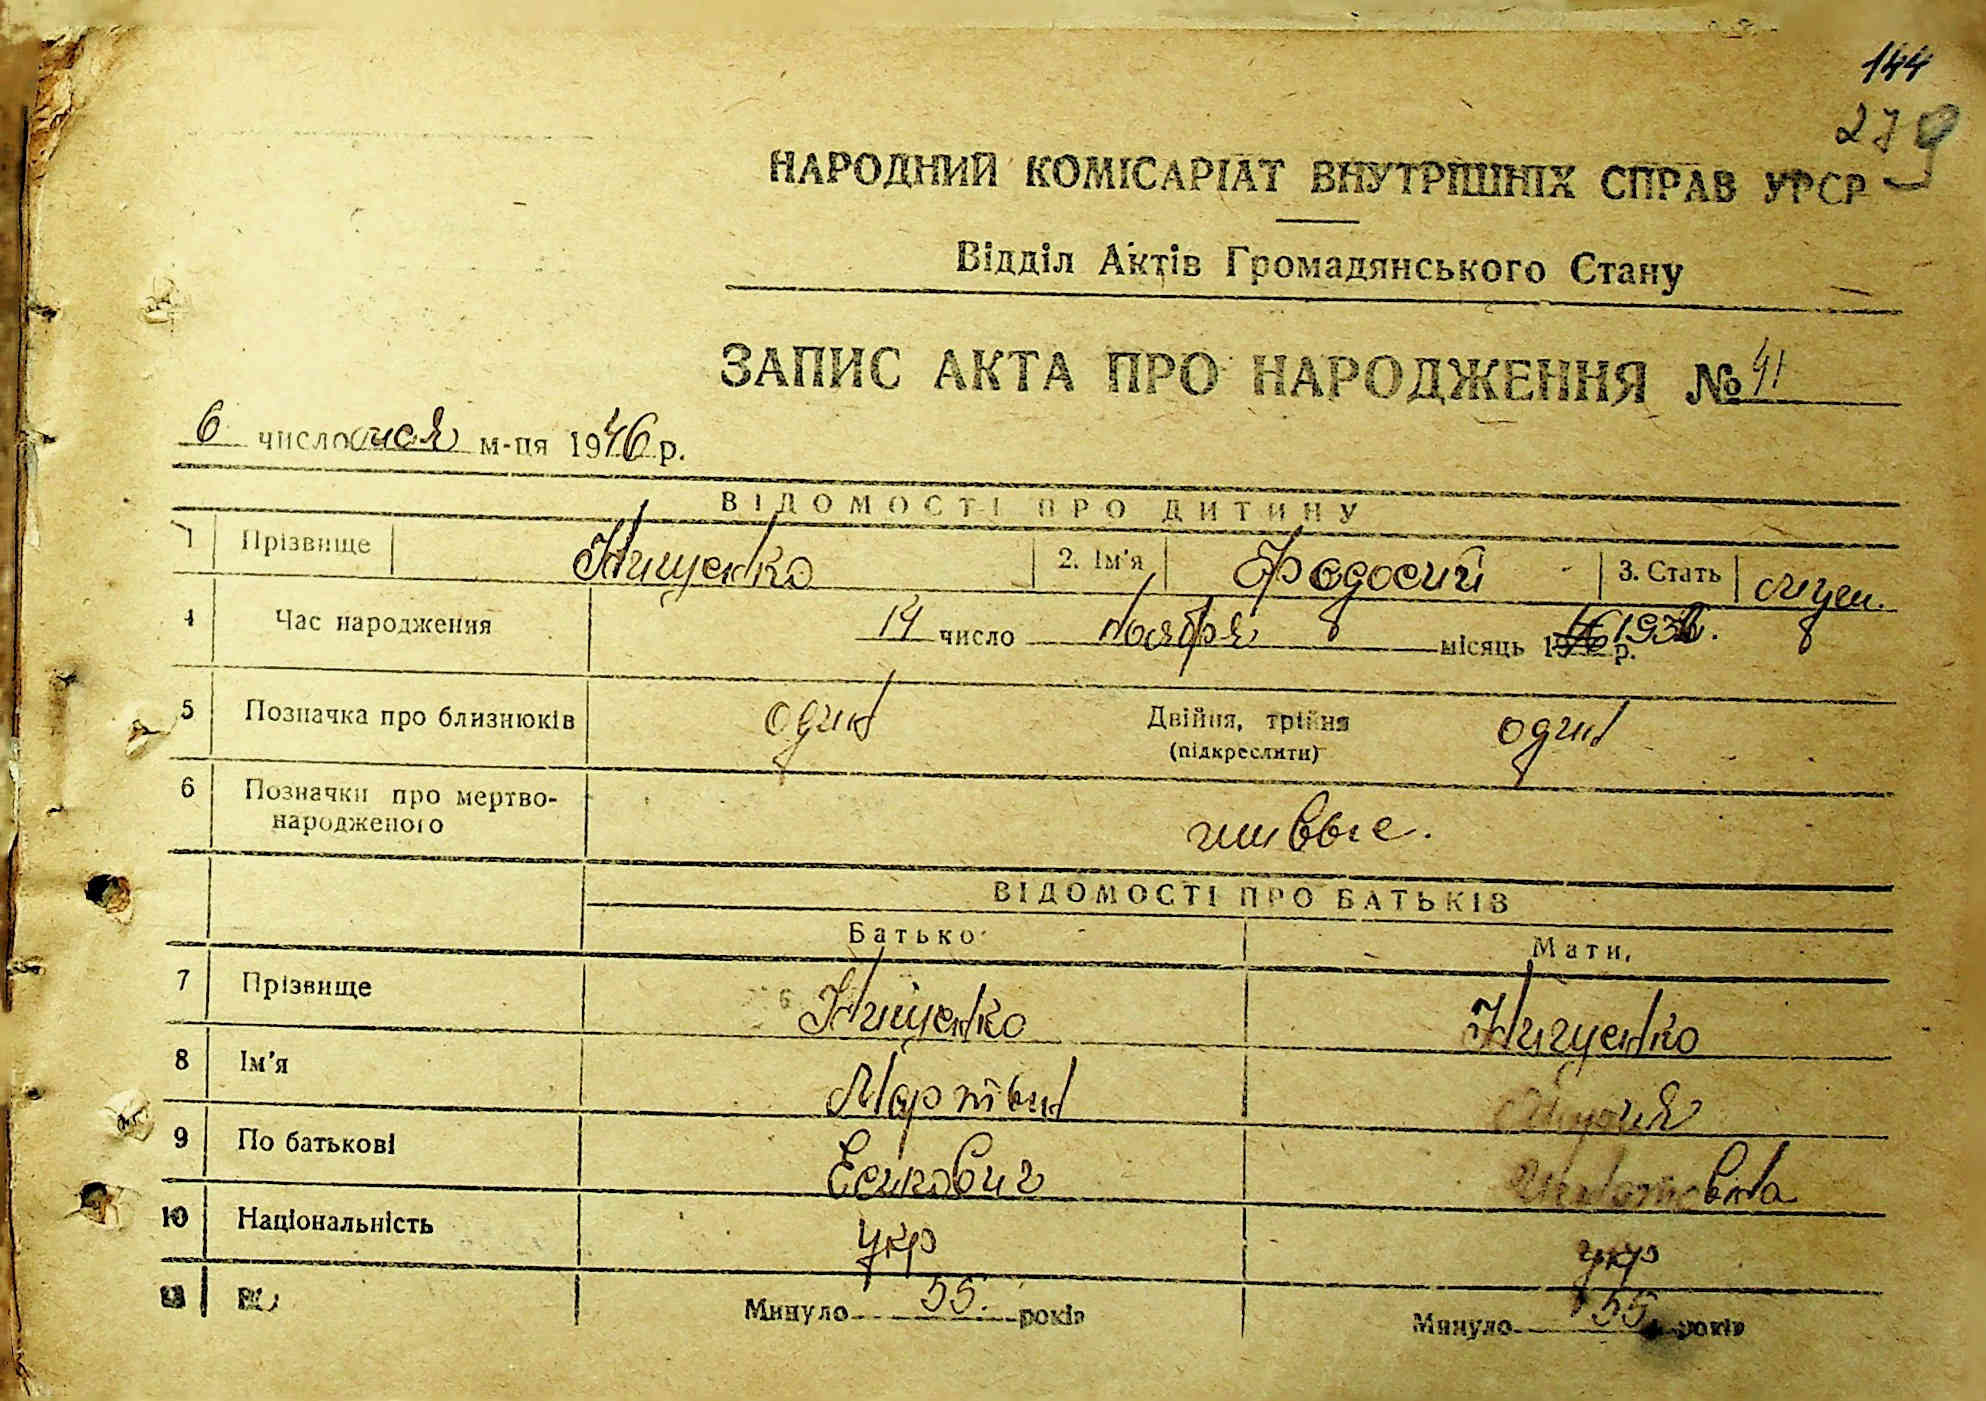 144
279
НАРОДНИЙ КОМІСАРІАТ ВНУТРІШНІХ СПРАВ УРСР
Відділ Актів Громадянського Стану
ЗАПИС АКТА ПРО НАРОДЖЕННЯ № 41
6 число мая м-ця 1946 р.
ВІДОМОСТІ ПРО ДИТИНУ
1 Прізвище Нищенко 2. Ім'я Феодосий 3. Стать муж.
4 Час народження 14 число ноября місяць 19 р.
5 Позначка про близнюків один Двійня, трійня один
(підкреслити)
6 Позначки про мертво-
народженого живые.
ВІДОМОСТІ ПРО БАТЬКІВ
Батько Мати,
7 Прізвище Нищенко Нищенко
8 Ім'я Мартын Мария
9 По батькові Ісакович
10 Національність укр укр
Минуло 55. років Минуло 55 років